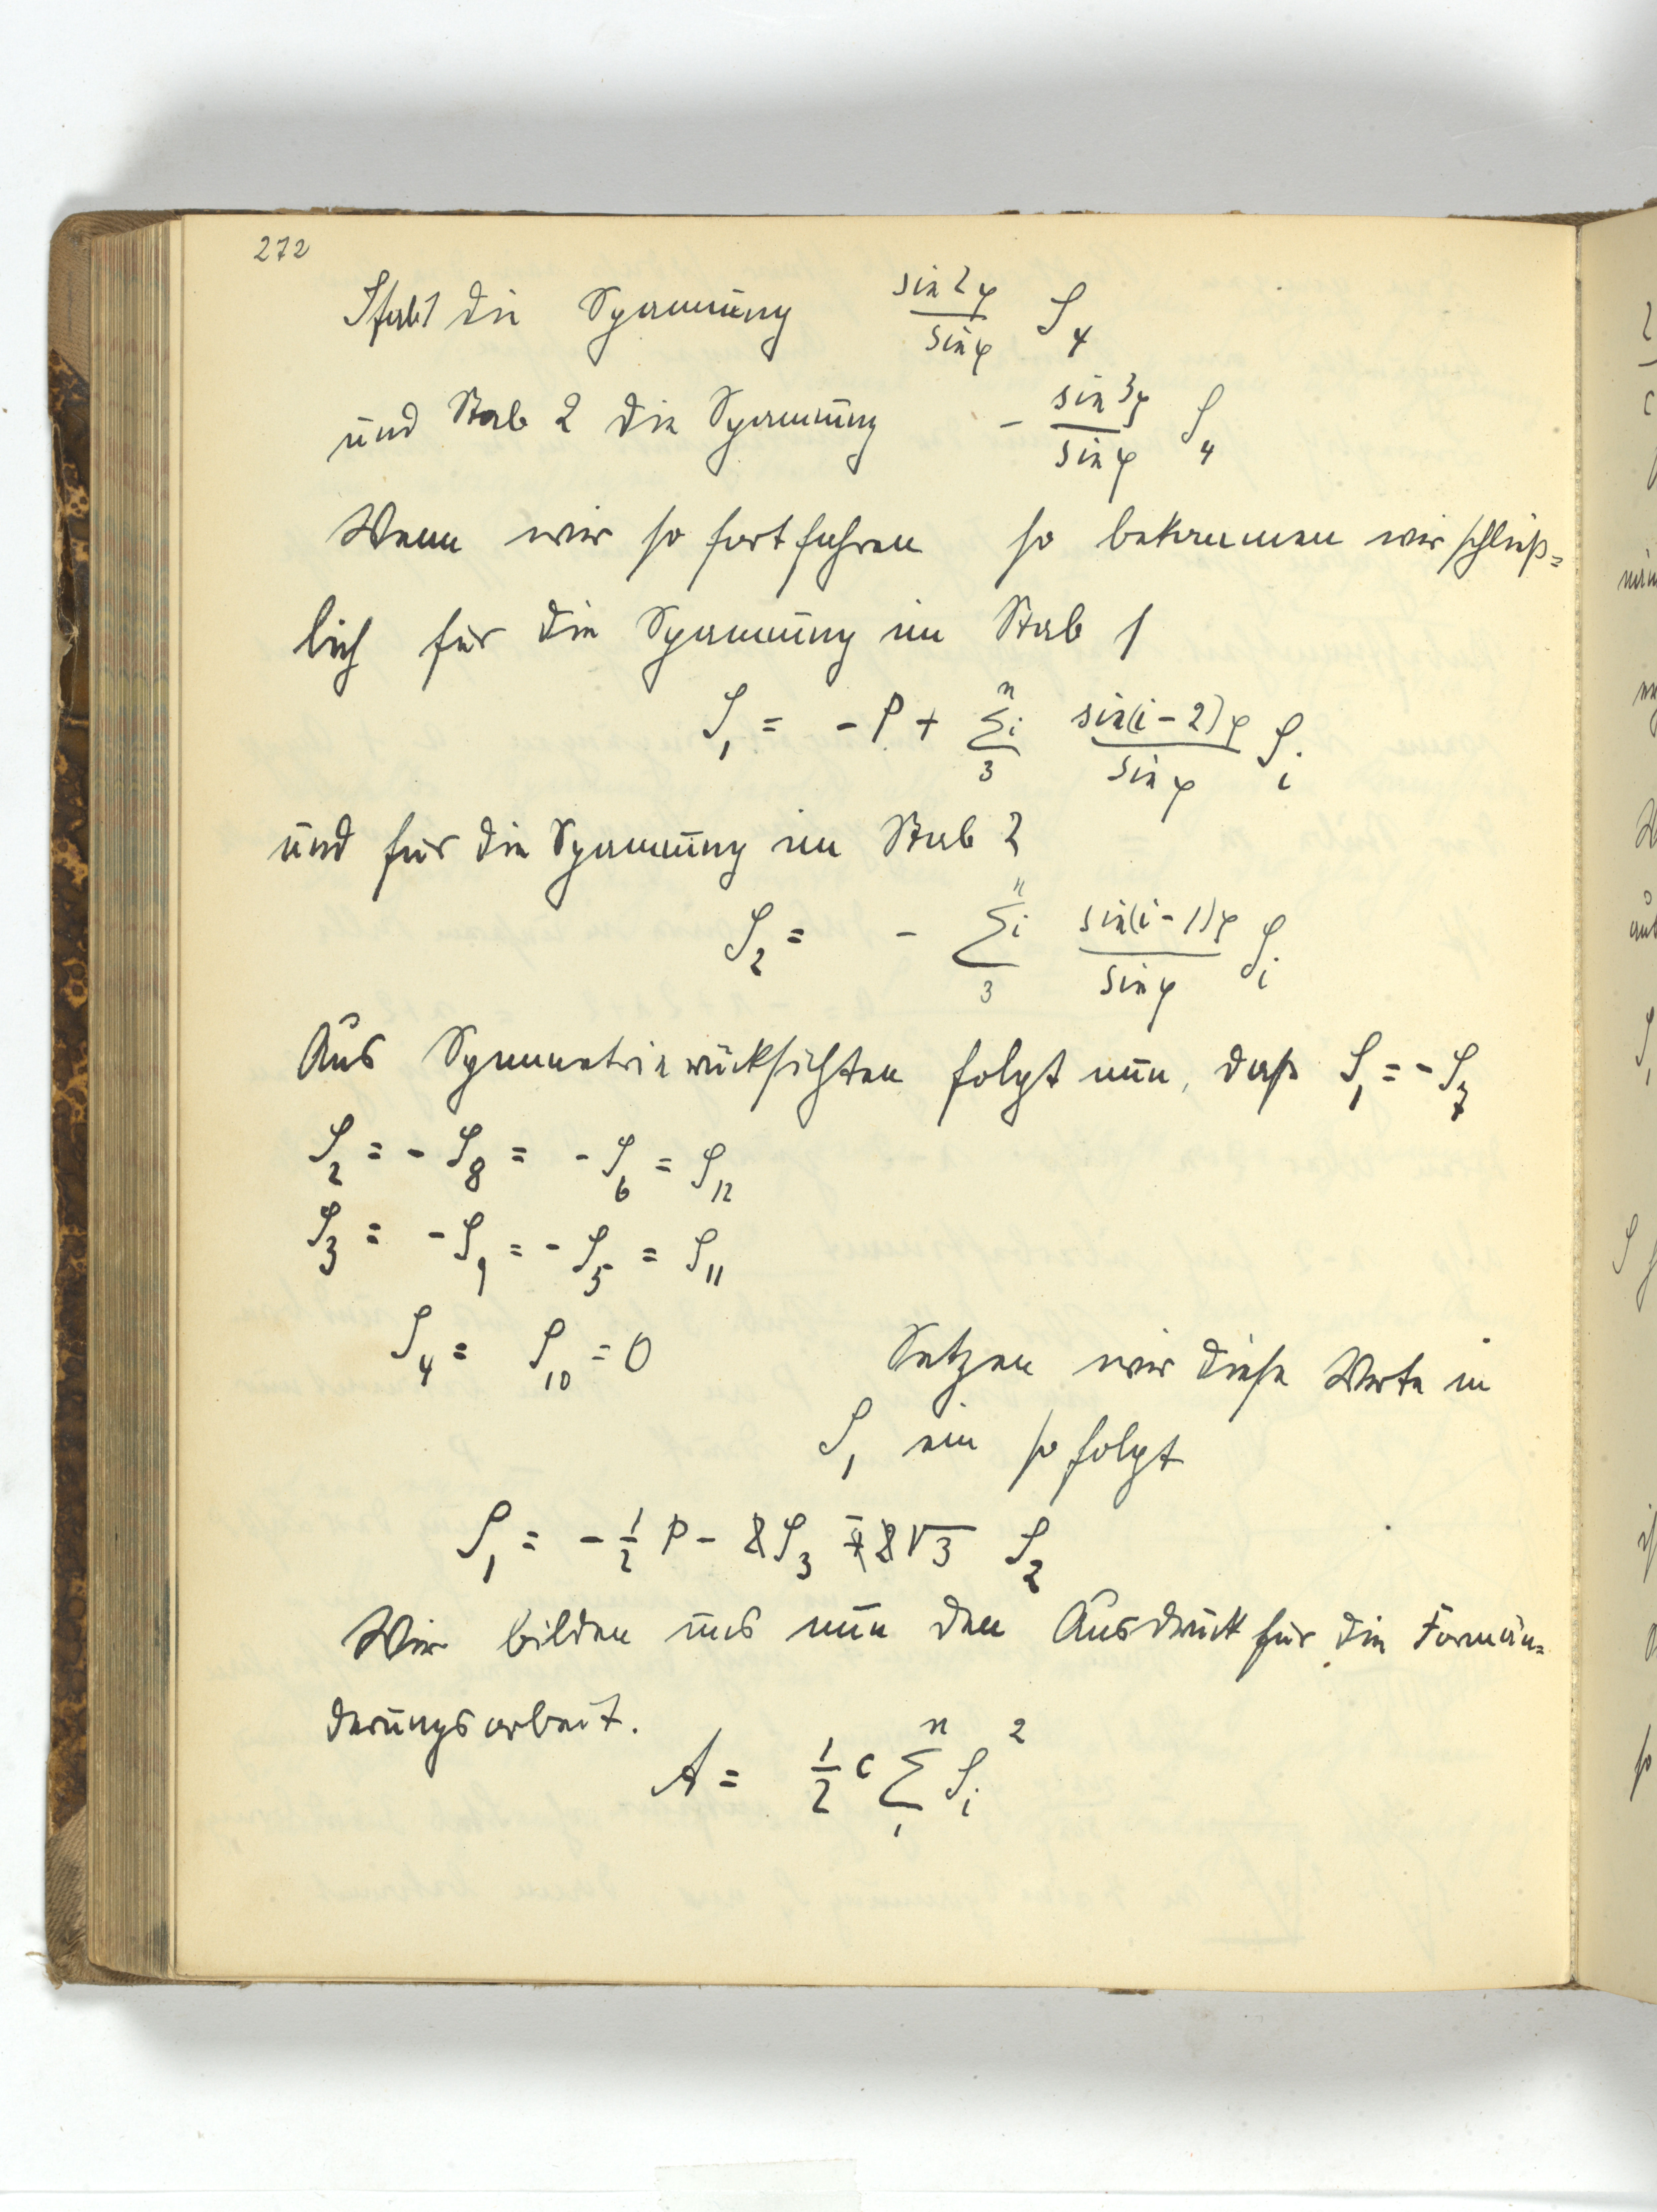 272
Stab 1 die Spannung sin 2φ / sin φ S₄
und Stab 2 die Spannung - sin 3φ / sin φ S₄
Wenn wir so fortfahren so bekommen wir schließ=
lich für die Spannung im Stab 1
S₁ = - P + Σᵢ₃ⁿ sin(i-2)φ / sin φ Sᵢ
und für die Spannung im Stab 2
S₂ = - Σᵢ₃ⁿ sin(i-1)φ / sin φ Sᵢ
Aus Symmetrierücksichten folgt nun, daß S₁ = - S₇
S₂ = - S₈ = - S₆ = S₁₂
S₃ = - S₉ = - S₅ = S₁₁
S₄ = S₁₀ = 0 Setzen wir diese Werte in
S₁ ein so folgt
S₁ = - ½ P - S₃ - √3 S₂
Wir bilden uns nun den Ausdruck für die Formän=
derungsarbeit.
A = ½ c Σ₁ⁿ Sᵢ²